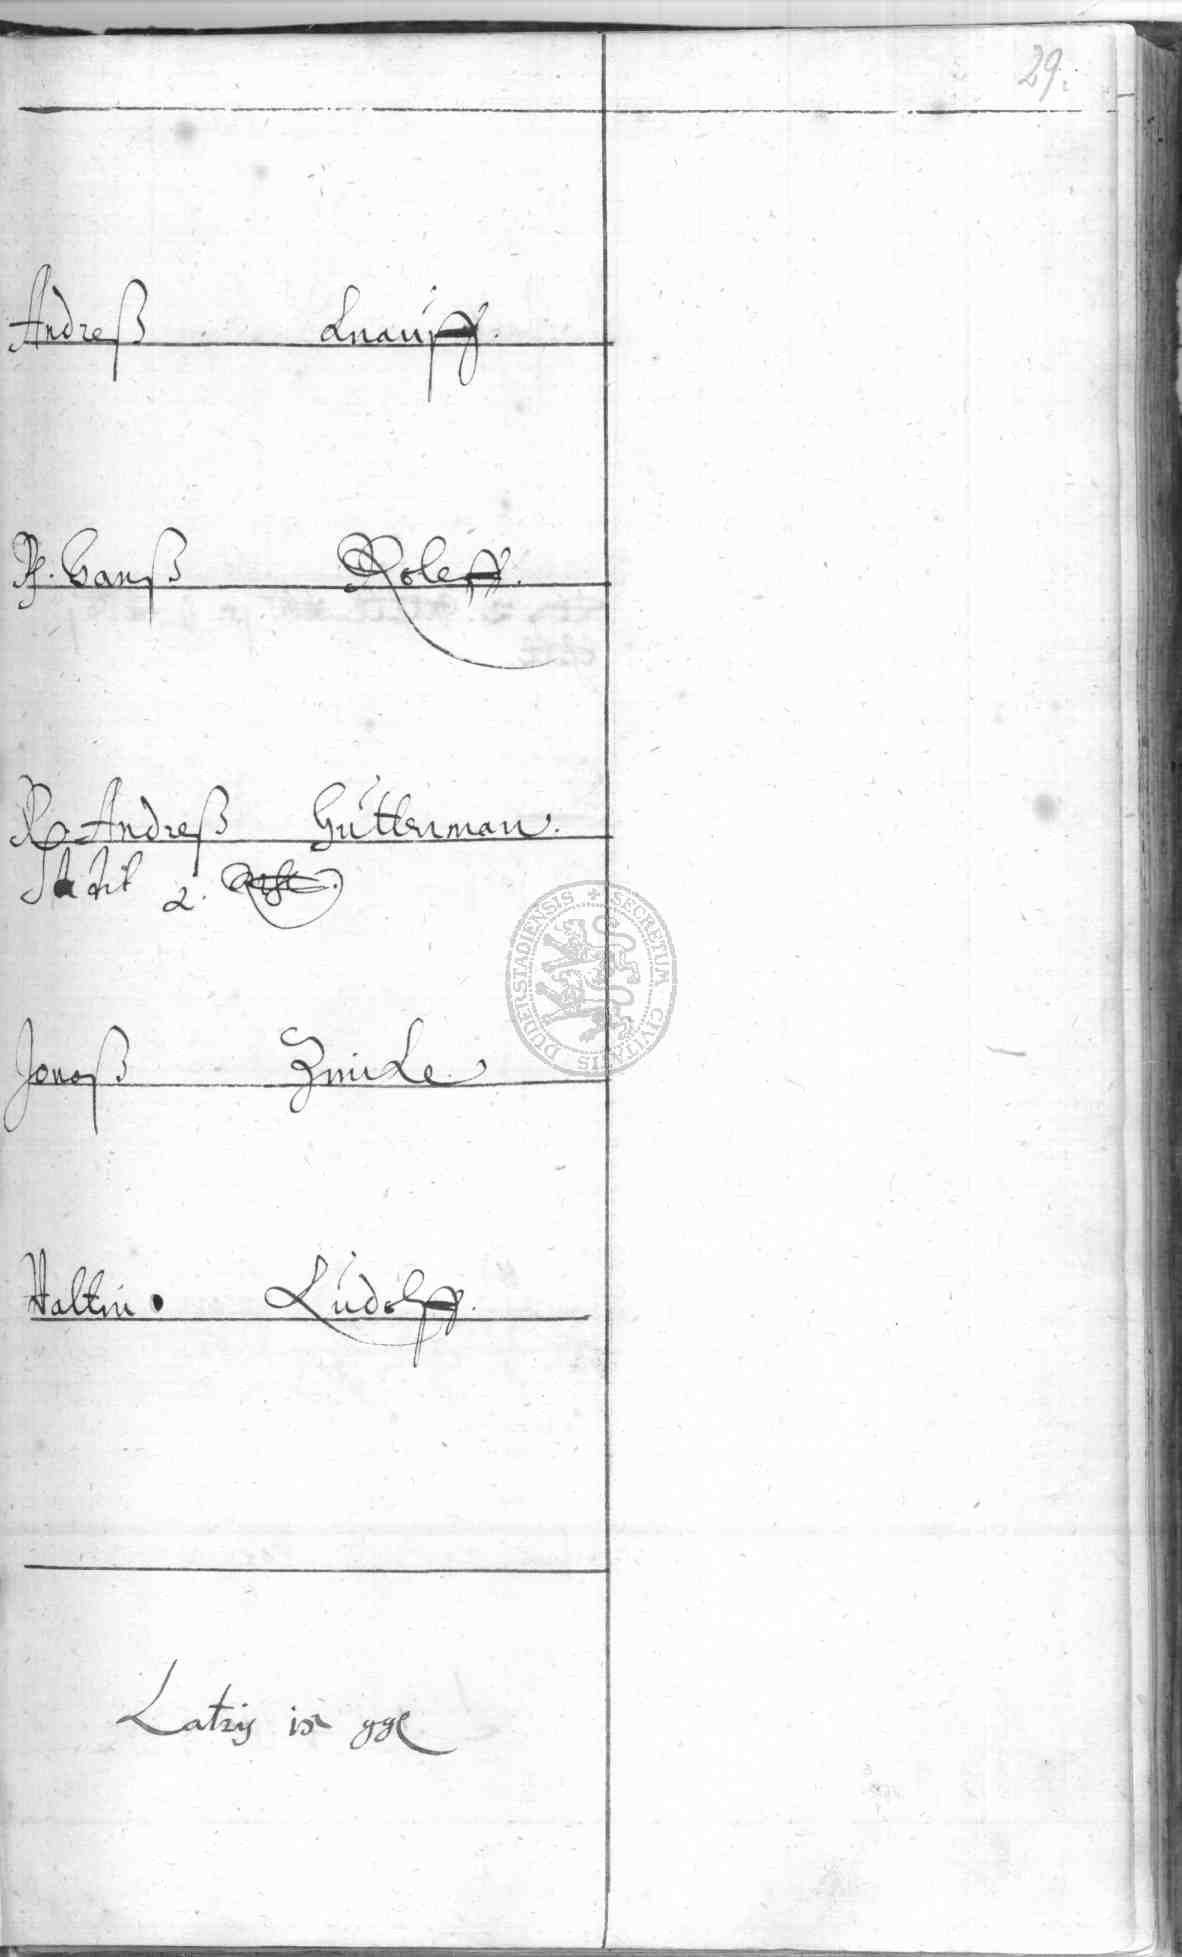 29.
Andreß Knauff.
H. Hanß Roleff.
R. Andreß Güttterman.
2.
Jonaß Zincke
Valtin Ludolff.
Latris ix gge
SECRETUM CIVITATIS DUDERSTADIENSIS